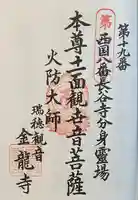 第十九番
第西国八番長谷寺分身霊場
本尊十一面觀世音菩薩
火防大師
瑞穂觀音
金龍寺